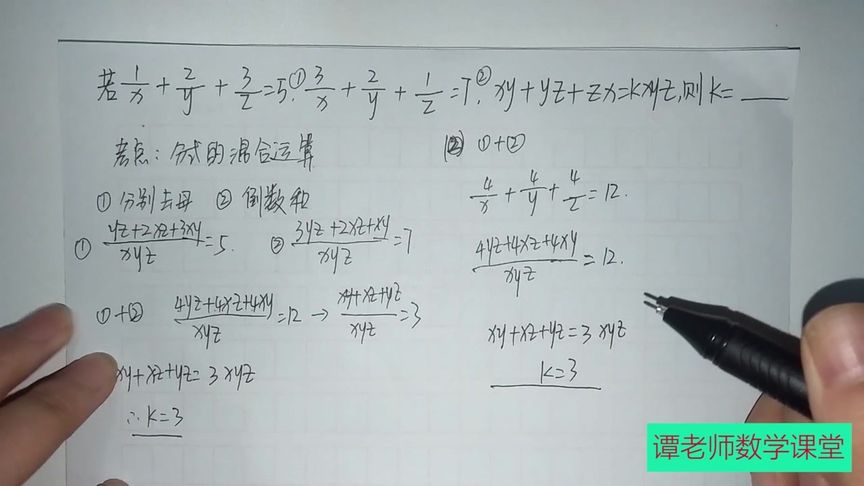 若1/x+2/y+3/z=5,① 3/x+2/y+1/z=7,② xy+yz+zx=kxyz,则k=____
考点:分式的混合运算
①分别去母 ②倒数和
① (yz+2xz+3xy)/xyz=5. ② (3yz+2xz+xy)/xyz=7
①+② (4yz+4xz+4xy)/xyz=12→(xy+xz+yz)/xyz=3
xy+xz+yz=3xyz
∴k=3
② ①+②
4/x+4/y+4/z=12.
(4yz+4xz+4xy)/xyz=12.
xy+xz+yz=3xyz
k=3
谭老师数学课堂